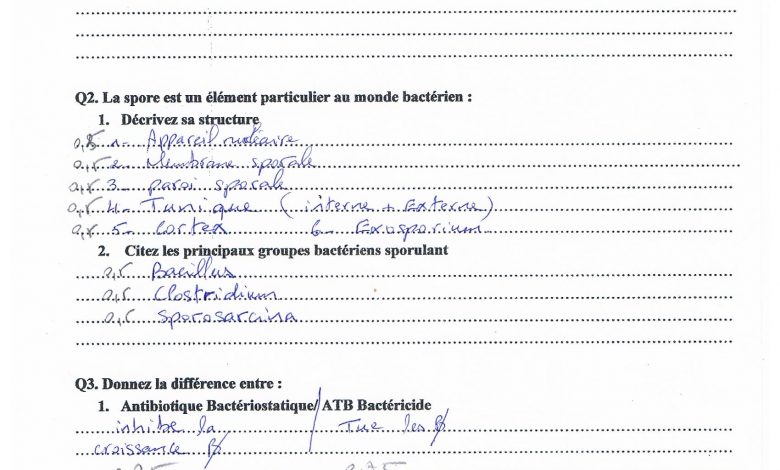 Q2. La spore est un élément particulier au monde bactérien :
1. Décrivez sa structure
0,5 1- Appareil nucléaire
0,5 2- Membrane sporale
0,5 3- paroi sporale
0,5 4- Tunique (interne + Externe)
0,5 5- Cortex 6- Exosporium
2. Citez les principaux groupes bactériens sporulant
0,5 Bacillus
0,5 Clostridium
0,5 Sporosarcina
Q3. Donnez la différence entre :
1. Antibiotique Bactériostatique/ ATB Bactéricide
inhibe la Tue les B
croissance B
0,25 0,25